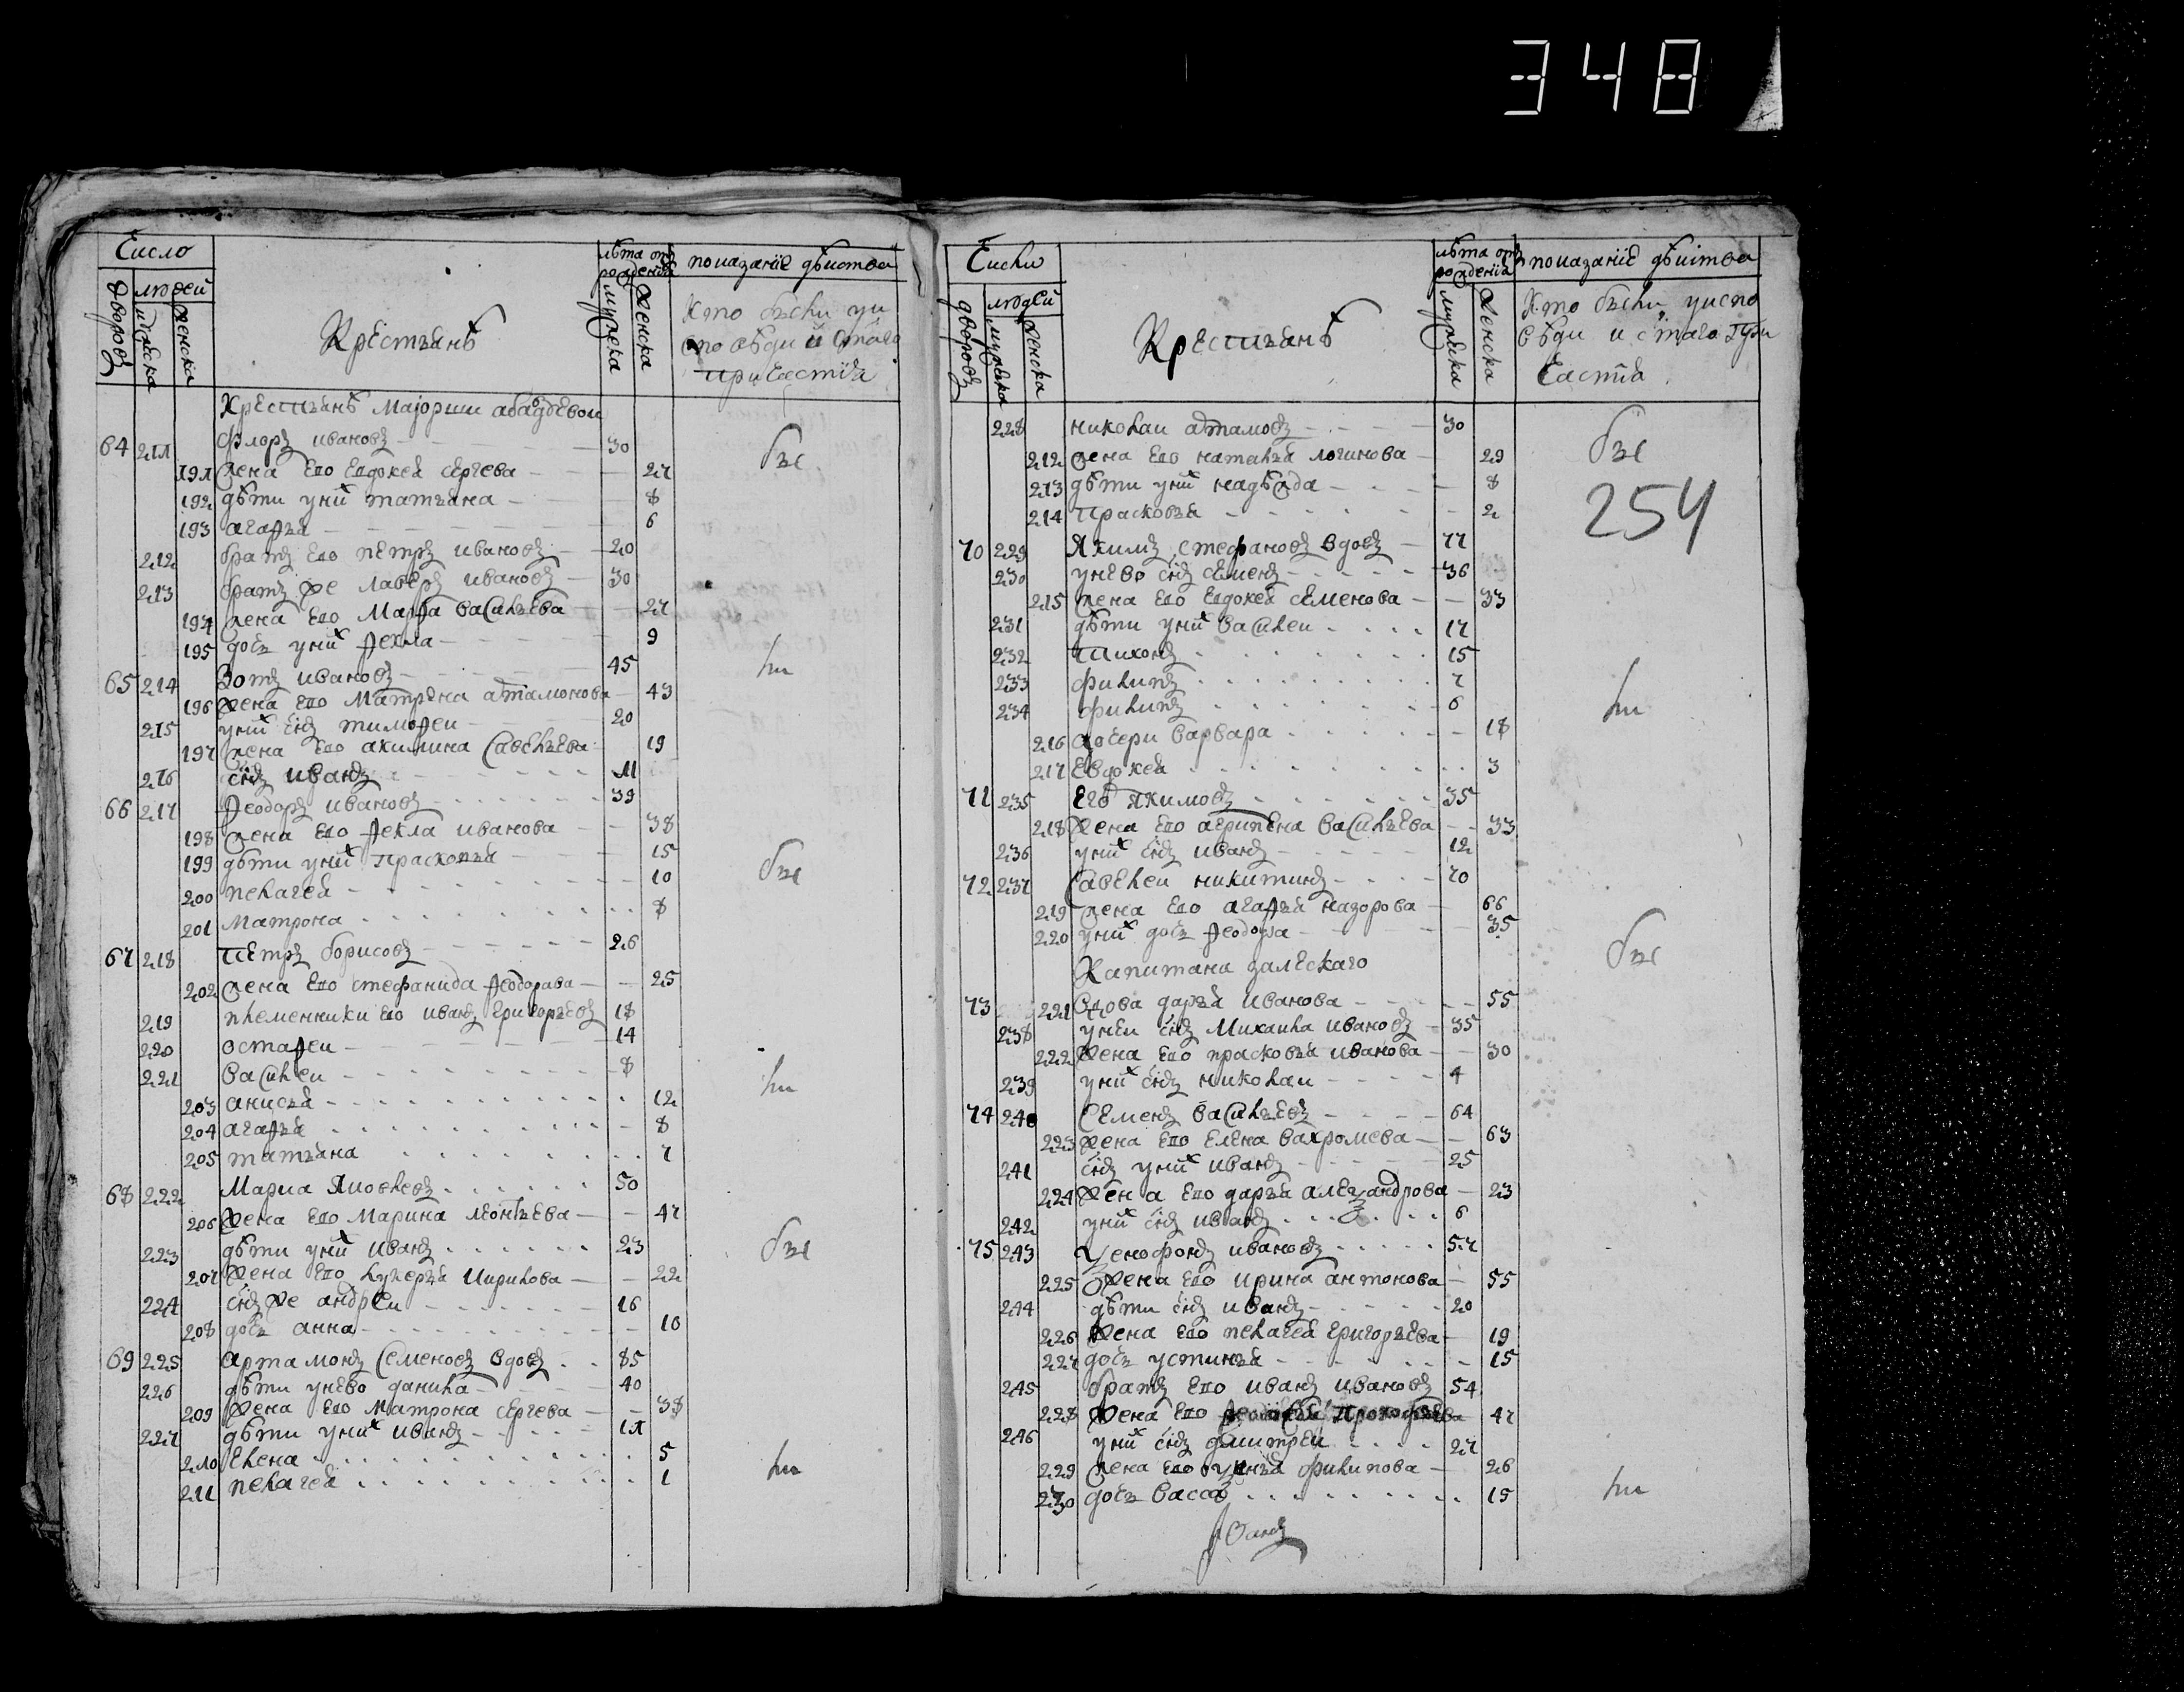 348
Число
лѣта отъ рождениа
показание дѣиства
дворовъ
людеи
мужеска
женска
Крестьянѣ
мужеска
женска
Кто были у и
споведи и стаго
причастиа
Крестьянѣ маіорши
64 211 Флоръ ивановъ 30 бы
191 жена ево евдокеа сергева 27
192 дѣти у них татьана 8
193 агафьа 6
212 братъ ево петръ ивановъ 20
213 братъ же лаверъ ивановъ 30
194 жена ево марфа васильева 27
195 дочь у них фекла 9
65 214 Зотъ ивановъ 45 ли
196 жена ево матрена атамонова 43
215 у них снъ тимофеи 20
197 жена ево акилина савельева 19
216 снъ иванъ 11
66 217 Феодоръ ивановъ 39
198 жена ево фекла иванова 38
199 дѣти у них праскопьа 15 бы
200 пелагеа 10
201 матрона 8
67 218 Петръ борисовъ 26
202 жена ево стефанида феодорава 25
219 племенники ево иванъ григорьевъ 18
220 остафеи 14
221 василеи 8 ли
203 анисьа 12
204 агафьа 8
205 татьана 7
68 222 Мариа Яковлевъ 50
206 жена ево марина леонтьева 47
223 дѣти у них иванъ 23 бы
207 жена ево лукерьа кирилова 22
224 снъ же андреи 16
208 дочь анна 10
69 225 Артамонъ семеновъ вдовъ 85
226 дѣти у нево данила 40
209 жена ево матрона сергева 38
227 дѣти у них иванъ 11
210 елена 5 ли
211 пелагеа 1
Числи
лѣта отъ рождениа
показаниѣ дѣиства
дворовъ
людеи
мужеска
женска
Крестьанѣ
мужеска
женска
Кто были у испо
вѣди и стаго при
частиа
228 николаи атамовъ 30
212 жена ево наталъа логинова 29 бы
213 дѣти у них надѣжда 8
214 прасковьа 2
254
70 229 Якимъ стефановъ вдовъ 77
230 у нево снъ семенъ 36
215 жена ево евдокеа семенова 33
231 дѣти у них василеи 17
232 тихонъ 15
233 филипъ 7
234 филипъ 6 ли
216 дочери варвара 18
217 евдокеа 3
71 235 Якимовъ 35
218 жена ево агрипена васильева 33
236 у них снъ иванъ 12
72 237 Савелеи никитинъ 70
219 жена ево агафьа назорова 66
220 у них дочь феодора 35 бы
Капитана залескаго
73 221 вдова дарьа иванова 55
238 у неи снъ михаила ивановъ 35
222 жена ево прасковьа иванова 30
239 у них снъ николаи 4
74 240 Семенъ васильевъ 64
223 жена ево елена вахромева 63
241 снъ у них иванъ 25
224 жена ево дарьа алезандрова 23
242 у них снъ иванъ 6
75 243 Ксенофонъ ивановъ 57
225 жена ево ирина антонова 55
244 дѣти снъ иванъ 20
226 жена ево пелагеа григорьева 19
227 дочь устиньа 15
245 братъ ево иванъ ивановъ 54
228 жена ево прокофьева 47
246 у них снъ дмитреи 27
229 жена ево филипова 26
230 дочь васса 15 ли
Иванъ